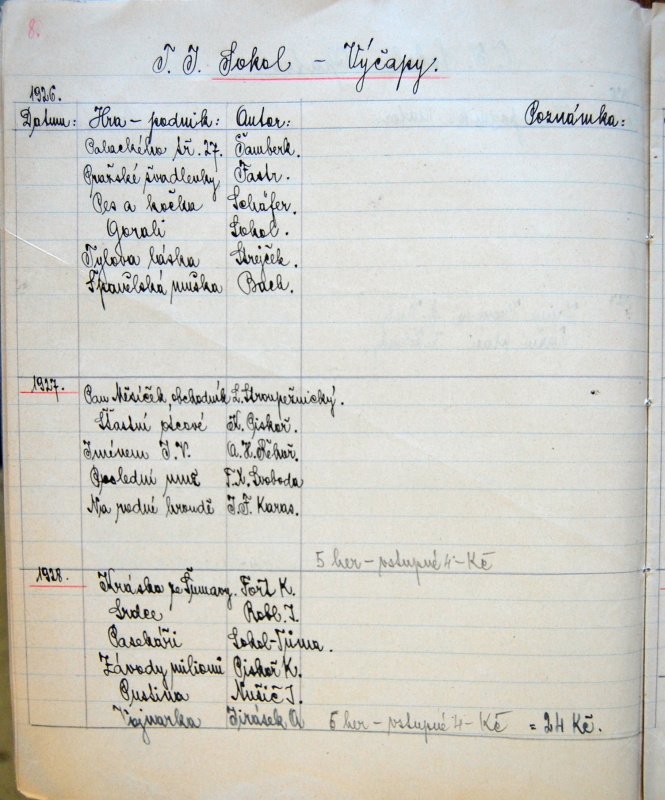 8.
T. J. Sokol - Výčapy.
1926.
Datum: Hra - podnik: Autor: Poznámka:
Palackého tř. 27. Šamberk.
Pražské švadlenky Fastr.
Pes a kočka Schäfer.
Gorali Sokol.
Tylova láska Strejček.
Španělská muška Bach.
1927.
Pan Měsíček, obchodník L. Stroupežnický.
Šťastní otcové K. Piskoř.
Jménem J. V. A. H.
Poslední muž F. X. Svoboda
Na rodné hroudě J. F. Karas.
5 her - vstupné 4- Kč
1928.
Kráska ze Šumavy. Fořt K.
Srdce Robl. J.
Pasekáři Sokol-Tůma.
Závody milionů Piskoř K.
Pustina Nušič J.
Vojnarka Jirásek A 6 her - vstupné 4- Kč = 24 Kč.